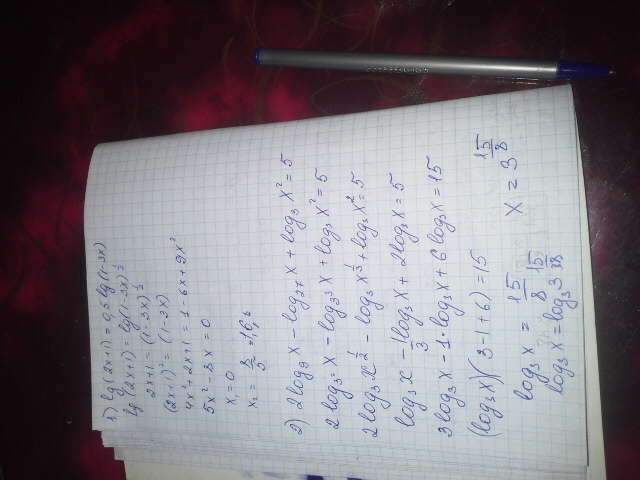 1) lg(2x+1) = 0,5 lg(1-3x)
lg(2x+1) = lg(1-3x)^½
2x+1 = (1-3x)^½
(2x+1)² = (1-3x)
4x²+2x+1 = 1-6x+9x²
5x²-8x=0
x₁ = 0
x₂ = 8/5 = 1,6
2) 2log₉ x - log₂₇ x + log₃ x² = 5
2log₃² x - log₃³ x + log₃ x² = 5
2log₃ x^½ - log₃ x^⅓ + log₃ x² = 5
log₃ x - 1/3 log₃ x + 2log₃ x = 5
3log₃ x - 1·log₃ x + 6log₃ x = 15
(log₃ x)(3-1+6) = 15
log₃ x = 15/8
log₃ x = log₃ 3^(15/8) x = 3^(15/8)